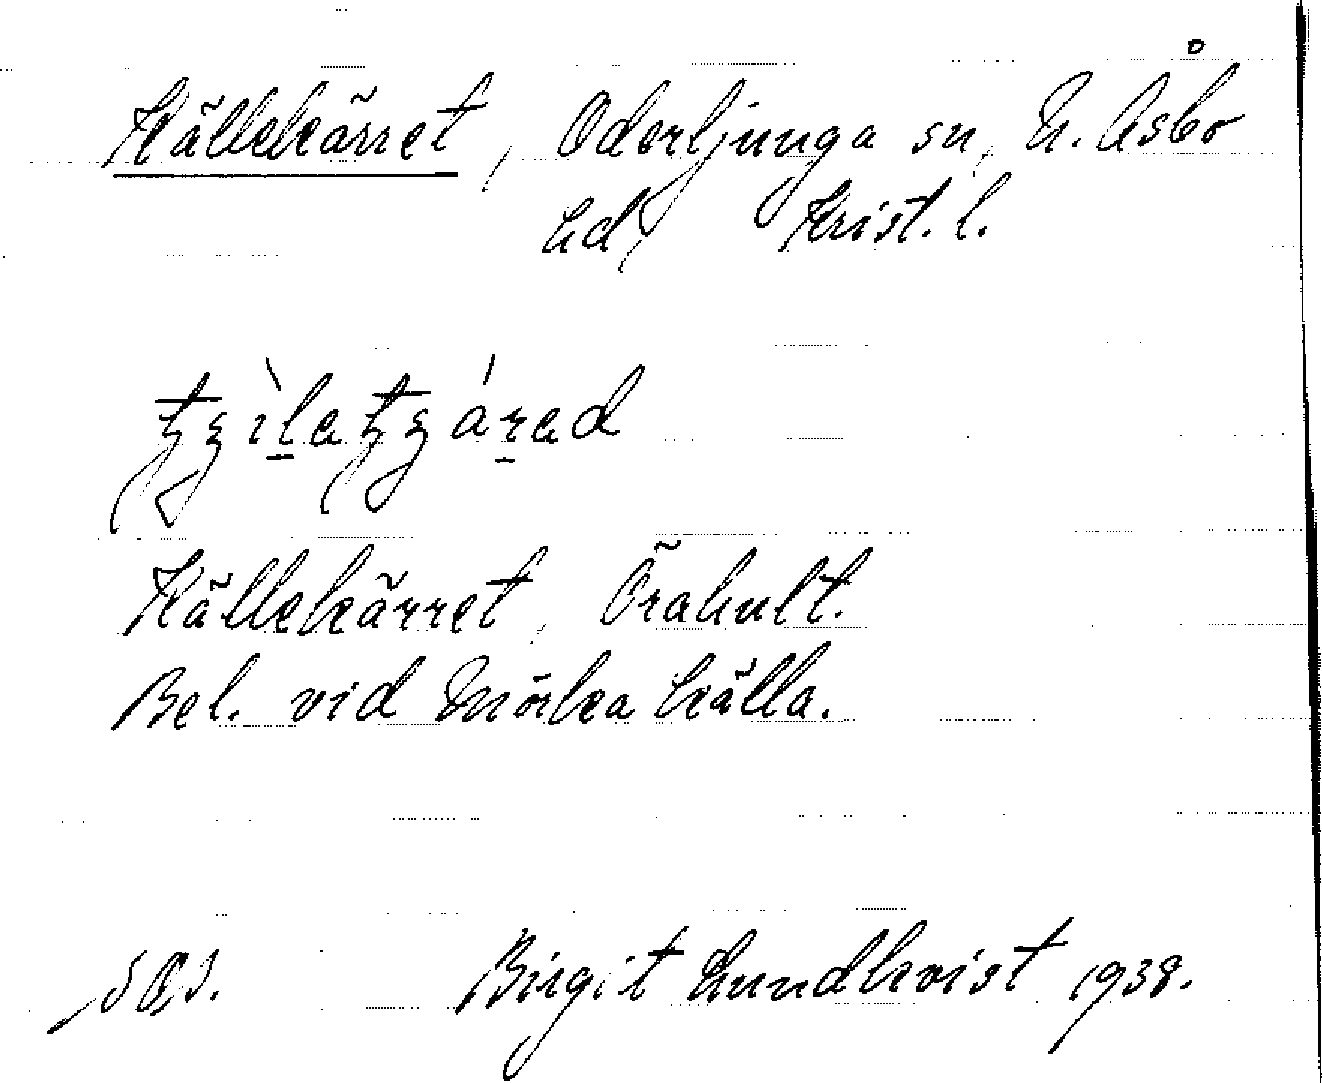 Källekärret, Oderljunga sn, N. Åsbo
hd, Krist. l.
Källekärret, Örahult.
Bel. vid Mörka källa.
Birgit Lundkvist 1938.